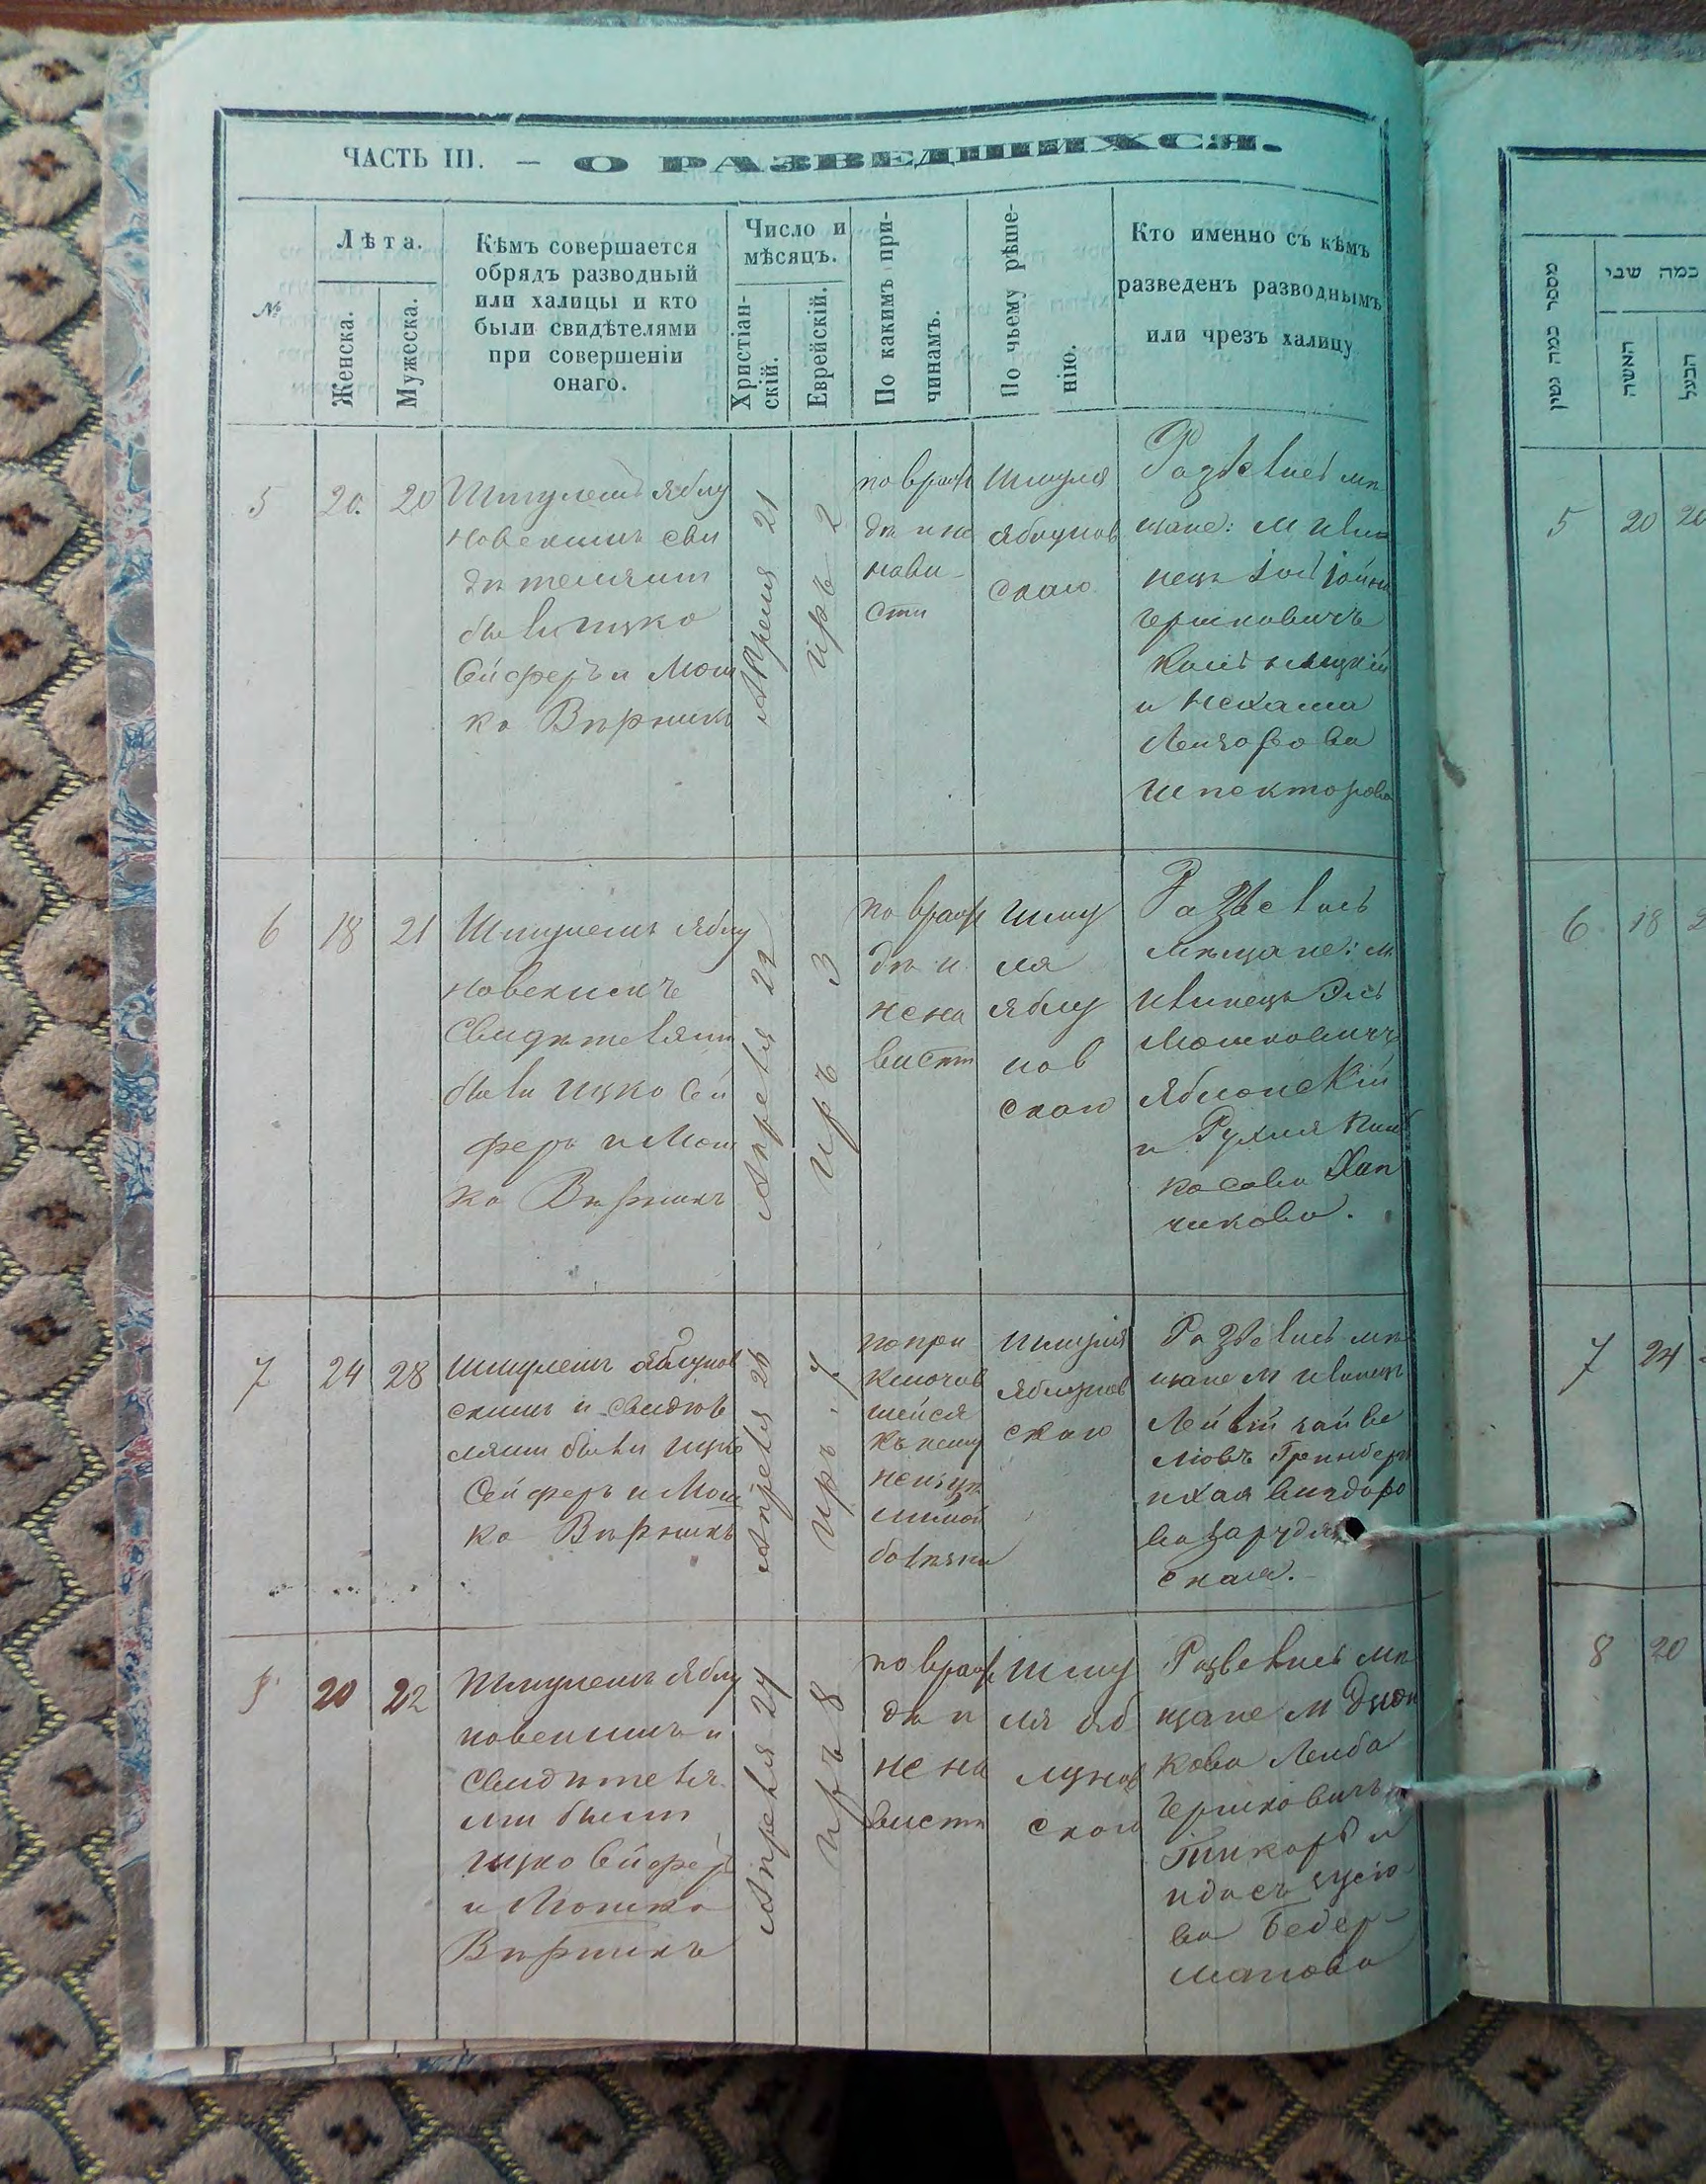 ЧАСТЬ III. — О РАЗВЕДШИХСЯ.
№
Лѣта.
Женска.
Мужеска.
Кѣмъ совершается
обрядъ разводный
или халицы и кто
были свидѣтелями
при совершеніи
онаго.
Число и
мѣсяцъ.
Христіан-
скій.
Еврейскій.
По какимъ при-
чинамъ.
По чьему рѣше-
нію.
Кто именно съ кѣмъ
разведенъ разводнымъ
или чрезъ халицу
5
20.
20
Шмулемъ Яблу
новскимъ сви
дѣтелями
были Ицко
Сейферъ и Мош
ко Вѣрникъ
Апреля 21
Иръ 2
по враж
дѣ и не
нави-
сти
Шмуля
Яблунов
скаго
Развелись мѣ
щане: М Ивни
нецъ
Гершковичъ
и Нехама
Лейзорова
Шпекторова
6
18
21
Шмулемъ Яблу
новскимъ
Свидѣтелями
были Ицко Сей
феръ и Мош
ко Вѣрникъ
Апреля 22
Иръ 3
по враж
дѣ и
нена
висти
Шму
ля
Яблу
нов
скаго
Развелись
Мѣщане: М
Мошковичъ
Яблонскій
и Рухля Пин
касова Хап
чикова.
7
24
28
Шмулемъ Яблунов
скимъ и свидѣте
лями были Ицко
Сейферъ и Мош
ко Вѣрникъ
Апреля 26
Иръ. 7
по при
ключив
шейся
къ нему
неизле
чимой
болѣзни
Шмуля
Яблунов
скаго
Развелись мѣ
щане М
Гринберг
и Хая Вигдоро
ва Зарудян
ская.
8
20
22
Шмулемъ Яблу
новскимъ и
свидѣтеля
ми были
Ицко Сейферъ
и Мошко
Вѣрникъ
Апреля 27
Иръ 8
по враж
дѣ и
нена
висти
Шму
ля Яб
лунов
скаго
Развелись мѣ
щане М Дзюн
кова Лейба
Гершковичъ
и
ва Бедер-
манова
מספר כמה גטין
כמה שני
האשה
הבעל
5
20
20
6
18
7
24
8
20